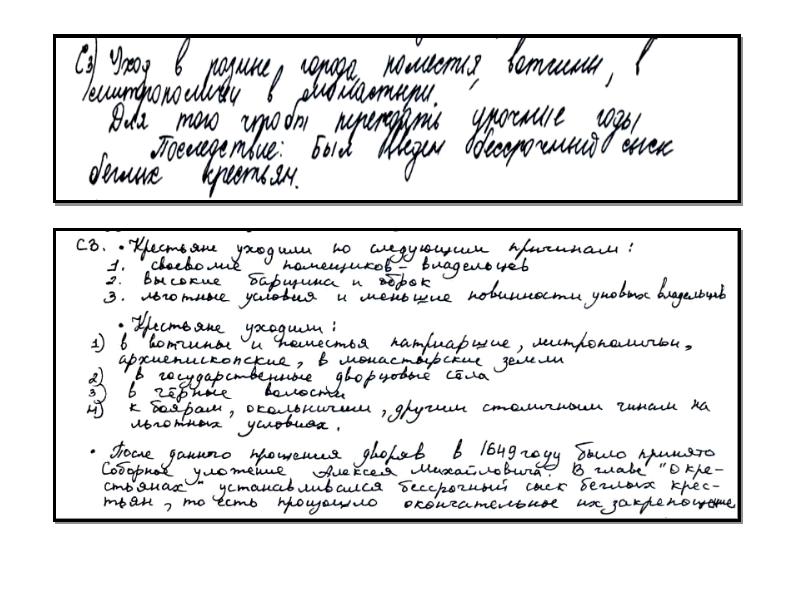 С3) Уход в разные города, поместья, вотчины, в
митрополии в монастыри.
Для того чтобы переждать урочные годы
Последствие: был введен бессрочный сыск
беглых крестьян.
С3. • Крестьяне уходили по следующим причинам:
1. своеволие помещиков-владельцев
2. высокие барщина и оброк
3. льготные условия и меньшие повинности у новых владельцев
• Крестьяне уходили:
1) в вотчины и поместья патриаршие, митрополичьи,
архиепископские, в монастырские земли
2) в государственные дворцовые сёла
3) в чёрные волости
4) к боярам, окольничим, другим столичным чинам на
льготных условиях.
• После данного прошения дворян в 1649 году было принято
Соборное уложение Алексея Михайловича. В главе "О кре-
стьянах" устанавливался бессрочный сыск беглых крес-
тьян, то есть произошло окончательное их закрепощение